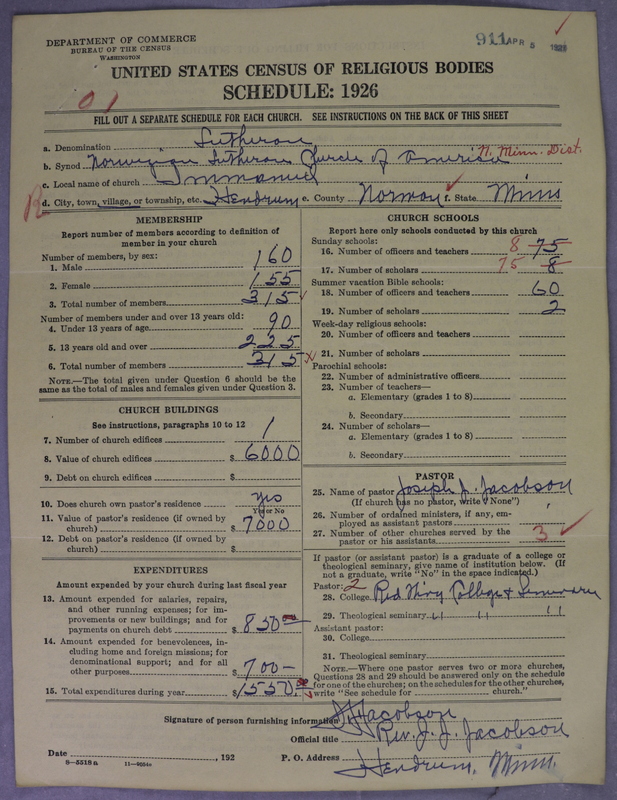 DEPARTMENT OF COMMERCE
BUREAU OF THE CENSUS
WASHINGTON
911 APR 5 1928
UNITED STATES CENSUS OF RELIGIOUS BODIES
SCHEDULE: 1926
01
FILL OUT A SEPARATE SCHEDULE FOR EACH CHURCH. SEE INSTRUCTIONS ON THE BACK OF THIS SHEET
a. Denomination Lutheran
b. Synod Norwegian Lutheran Church of America N. Minn. Dist.
c. Local name of church Immanuel
R d. City, town, village, or township, etc. Hendrum e. County Norman f. State Minn
MEMBERSHIP
Report number of members according to definition of member in your church
Number of members, by sex:
1. Male 160
2. Female 155
3. Total number of members 315
Number of members under and over 13 years old:
4. Under 13 years of age 90
5. 13 years old and over 225
6. Total number of members 315
NOTE.—The total given under Question 6 should be the same as the total of males and females given under Question 3.
CHURCH BUILDINGS
See instructions, paragraphs 10 to 12
7. Number of church edifices 1
8. Value of church edifices $ 6000
9. Debt on church edifices $
10. Does church own pastor's residence yes
Yes or No
11. Value of pastor's residence (if owned by church) $ 7000
12. Debt on pastor's residence (if owned by church) $
EXPENDITURES
Amount expended by your church during last fiscal year
13. Amount expended for salaries, repairs, and other running expenses; for improvements or new buildings; and for payments on church debt $ 850 00
14. Amount expended for benevolences, including home and foreign missions; for denominational support; and for all other purposes $ 700—
15. Total expenditures during year $ 1550.00
CHURCH SCHOOLS
Report here only schools conducted by this church
Sunday schools:
16. Number of officers and teachers 8 75
17. Number of scholars 75 8
Summer vacation Bible schools:
18. Number of officers and teachers 60
19. Number of scholars 2
Week-day religious schools:
20. Number of officers and teachers
21. Number of scholars
Parochial schools:
22. Number of administrative officers
23. Number of teachers—
a. Elementary (grades 1 to 8)
b. Secondary
24. Number of scholars—
a. Elementary (grades 1 to 8)
b. Secondary
PASTOR
25. Name of pastor Joseph J. Jacobson
(If church has no pastor, write "None")
26. Number of ordained ministers, if any, employed as assistant pastors
27. Number of other churches served by the pastor or his assistants 3
If pastor (or assistant pastor) is a graduate of a college or theological seminary, give name of institution below. (If not a graduate, write "No" in the space indicated.)
Pastor: 2
28. College Red Wing College & Seminary
29. Theological seminary " " "
Assistant pastor:
30. College
31. Theological seminary
NOTE.—Where one pastor serves two or more churches, Questions 28 and 29 should be answered only on the schedule for one of the churches; on the schedules for the other churches, write "See schedule for ______ church."
Signature of person furnishing information J J Jacobson
Official title Rev. J. J. Jacobson
Date , 192 P. O. Address Hendrum, Minn.
8—5518 a 11—9554